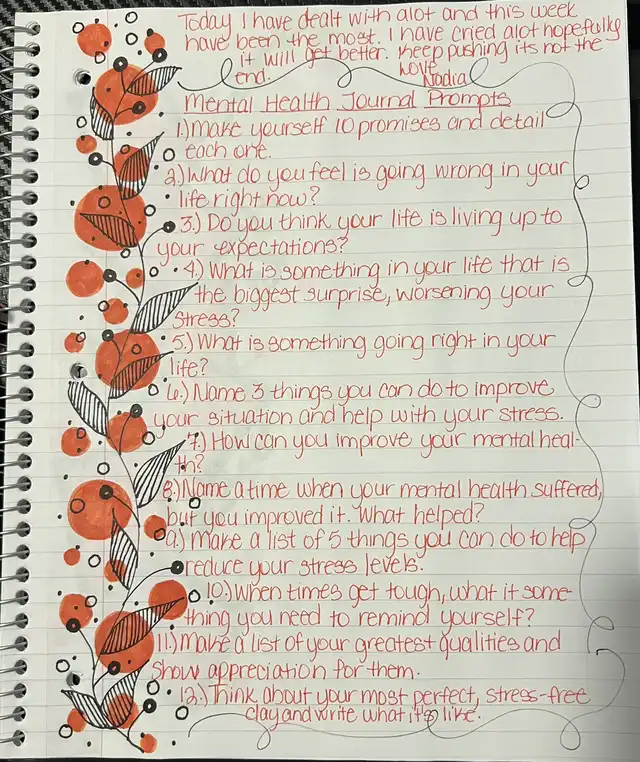 Today I have dealt with alot and this week
have been the most. I have cried alot hopefully
it will get better. Keep pushing its not the
end. Love
Nadia
Mental Health Journal Prompts
1.) Make yourself 10 promises and detail
each one.
2.) What do you feel is going wrong in your
life right now?
3.) Do you think your life is living up to
your expectations?
4.) What is something in your life that is
the biggest surprise, worsening your
stress?
5.) What is something going right in your
life?
6.) Name 3 things you can do to improve
your situation and help with your stress.
7.) How can you improve your mental heal-
th?
8.) Name a time when your mental health suffered,
but you improved it. What helped?
9.) Make a list of 5 things you can do to help
reduce your stress levels.
10.) When times get tough, what it some-
thing you need to remind yourself?
11.) Make a list of your greatest qualities and
show appreciation for them.
12.) Think about your most perfect, stress-free
day and write what it's like.